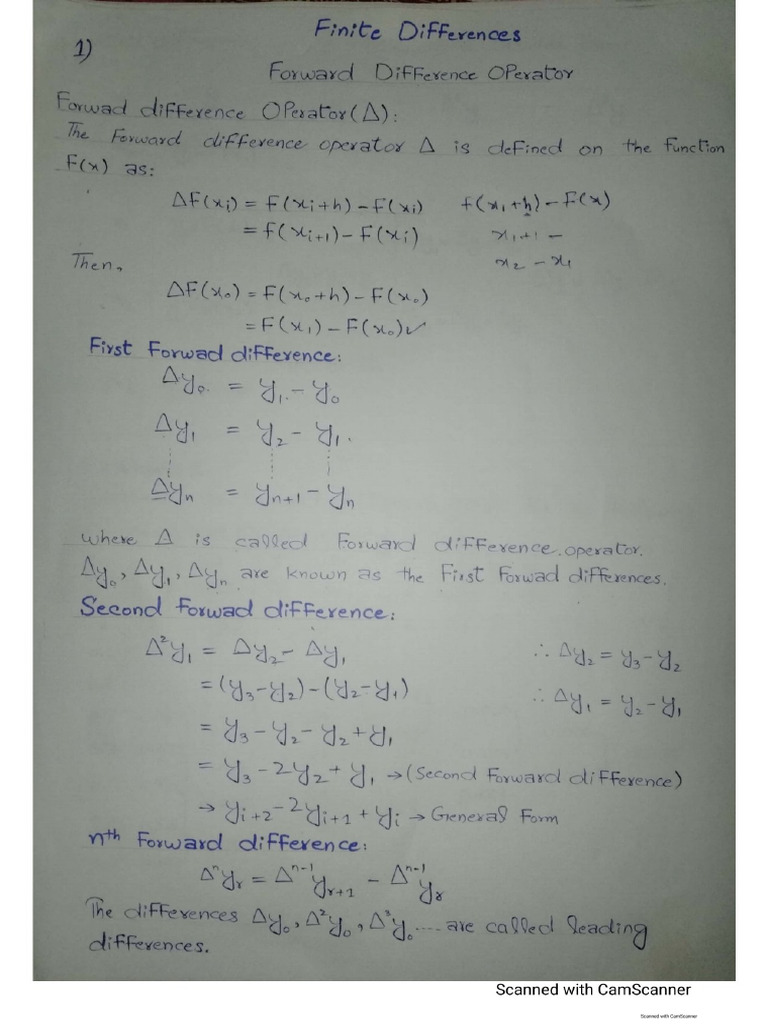 Finite Differences
1)
Forward Difference OPerator
Forwad difference OPerator (Δ):
The Forward difference operator Δ is defined on the function
F(x) as:
ΔF(xᵢ) = F(xᵢ+h) – F(xᵢ)   f(x₁+h) – F(x)
= f(xᵢ₊₁) – F(xᵢ)   x₁+1 –
Then,   x₂ – x₁
ΔF(x₀) = F(x₀+h) – F(x₀)
= F(x₁) – F(x₀)✓
First Forwad difference:
Δy₀ = y₁ – y₀
Δy₁ = y₂ – y₁.
Δyₙ = yₙ₊₁ – yₙ
where Δ is called Forward difference.operator.
Δy₀, Δy₁, Δyₙ are known as the First Forwad differences.
Second Forwad difference:
Δ²y₁ = Δy₂ – Δy₁   ∴ Δy₂ = y₃ – y₂
= (y₃–y₂)–(y₂–y₁)   ∴ Δy₁ = y₂ – y₁
= y₃ – y₂ – y₂ + y₁
= y₃ – 2y₂ + y₁ → (Second Forward difference)
→ yᵢ₊₂ – 2yᵢ₊₁ + yᵢ → General Form
nᵗʰ Forward difference:
Δⁿyᵣ = Δⁿ⁻¹yᵣ₊₁ – Δⁿ⁻¹yᵣ
The differences Δy₀, Δ²y₀, Δ³y₀ .... are called leading
differences.
Scanned with CamScanner
Scanned with CamScanner